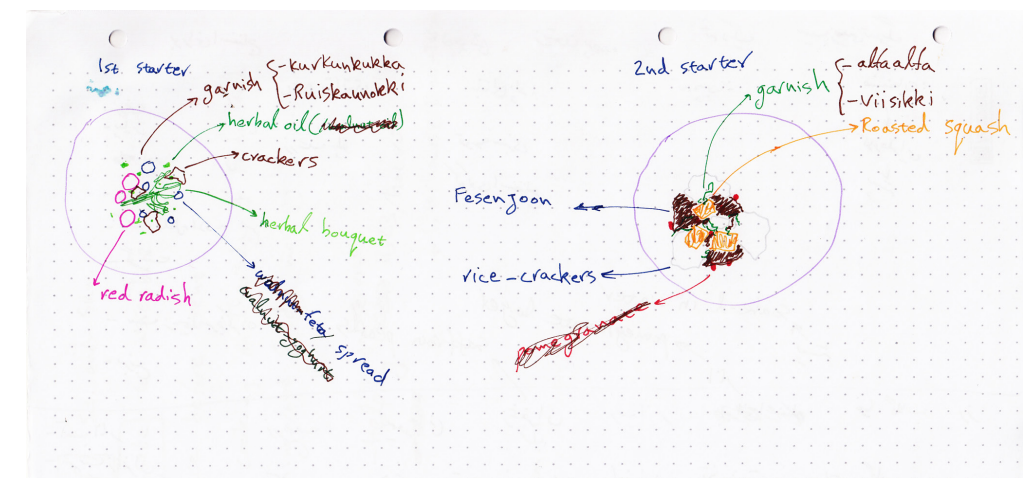 1st. starter
garnish
- kurkunkukka
- Ruiskaunokki
herbal oil (
crackers
herbal bouquet
feta spread
walnut-yoghurt
red radish
2nd starter
garnish
- alfaalfa
- Viisikki
Roasted squash
Fesenjoon
rice-crackers
pomegranate